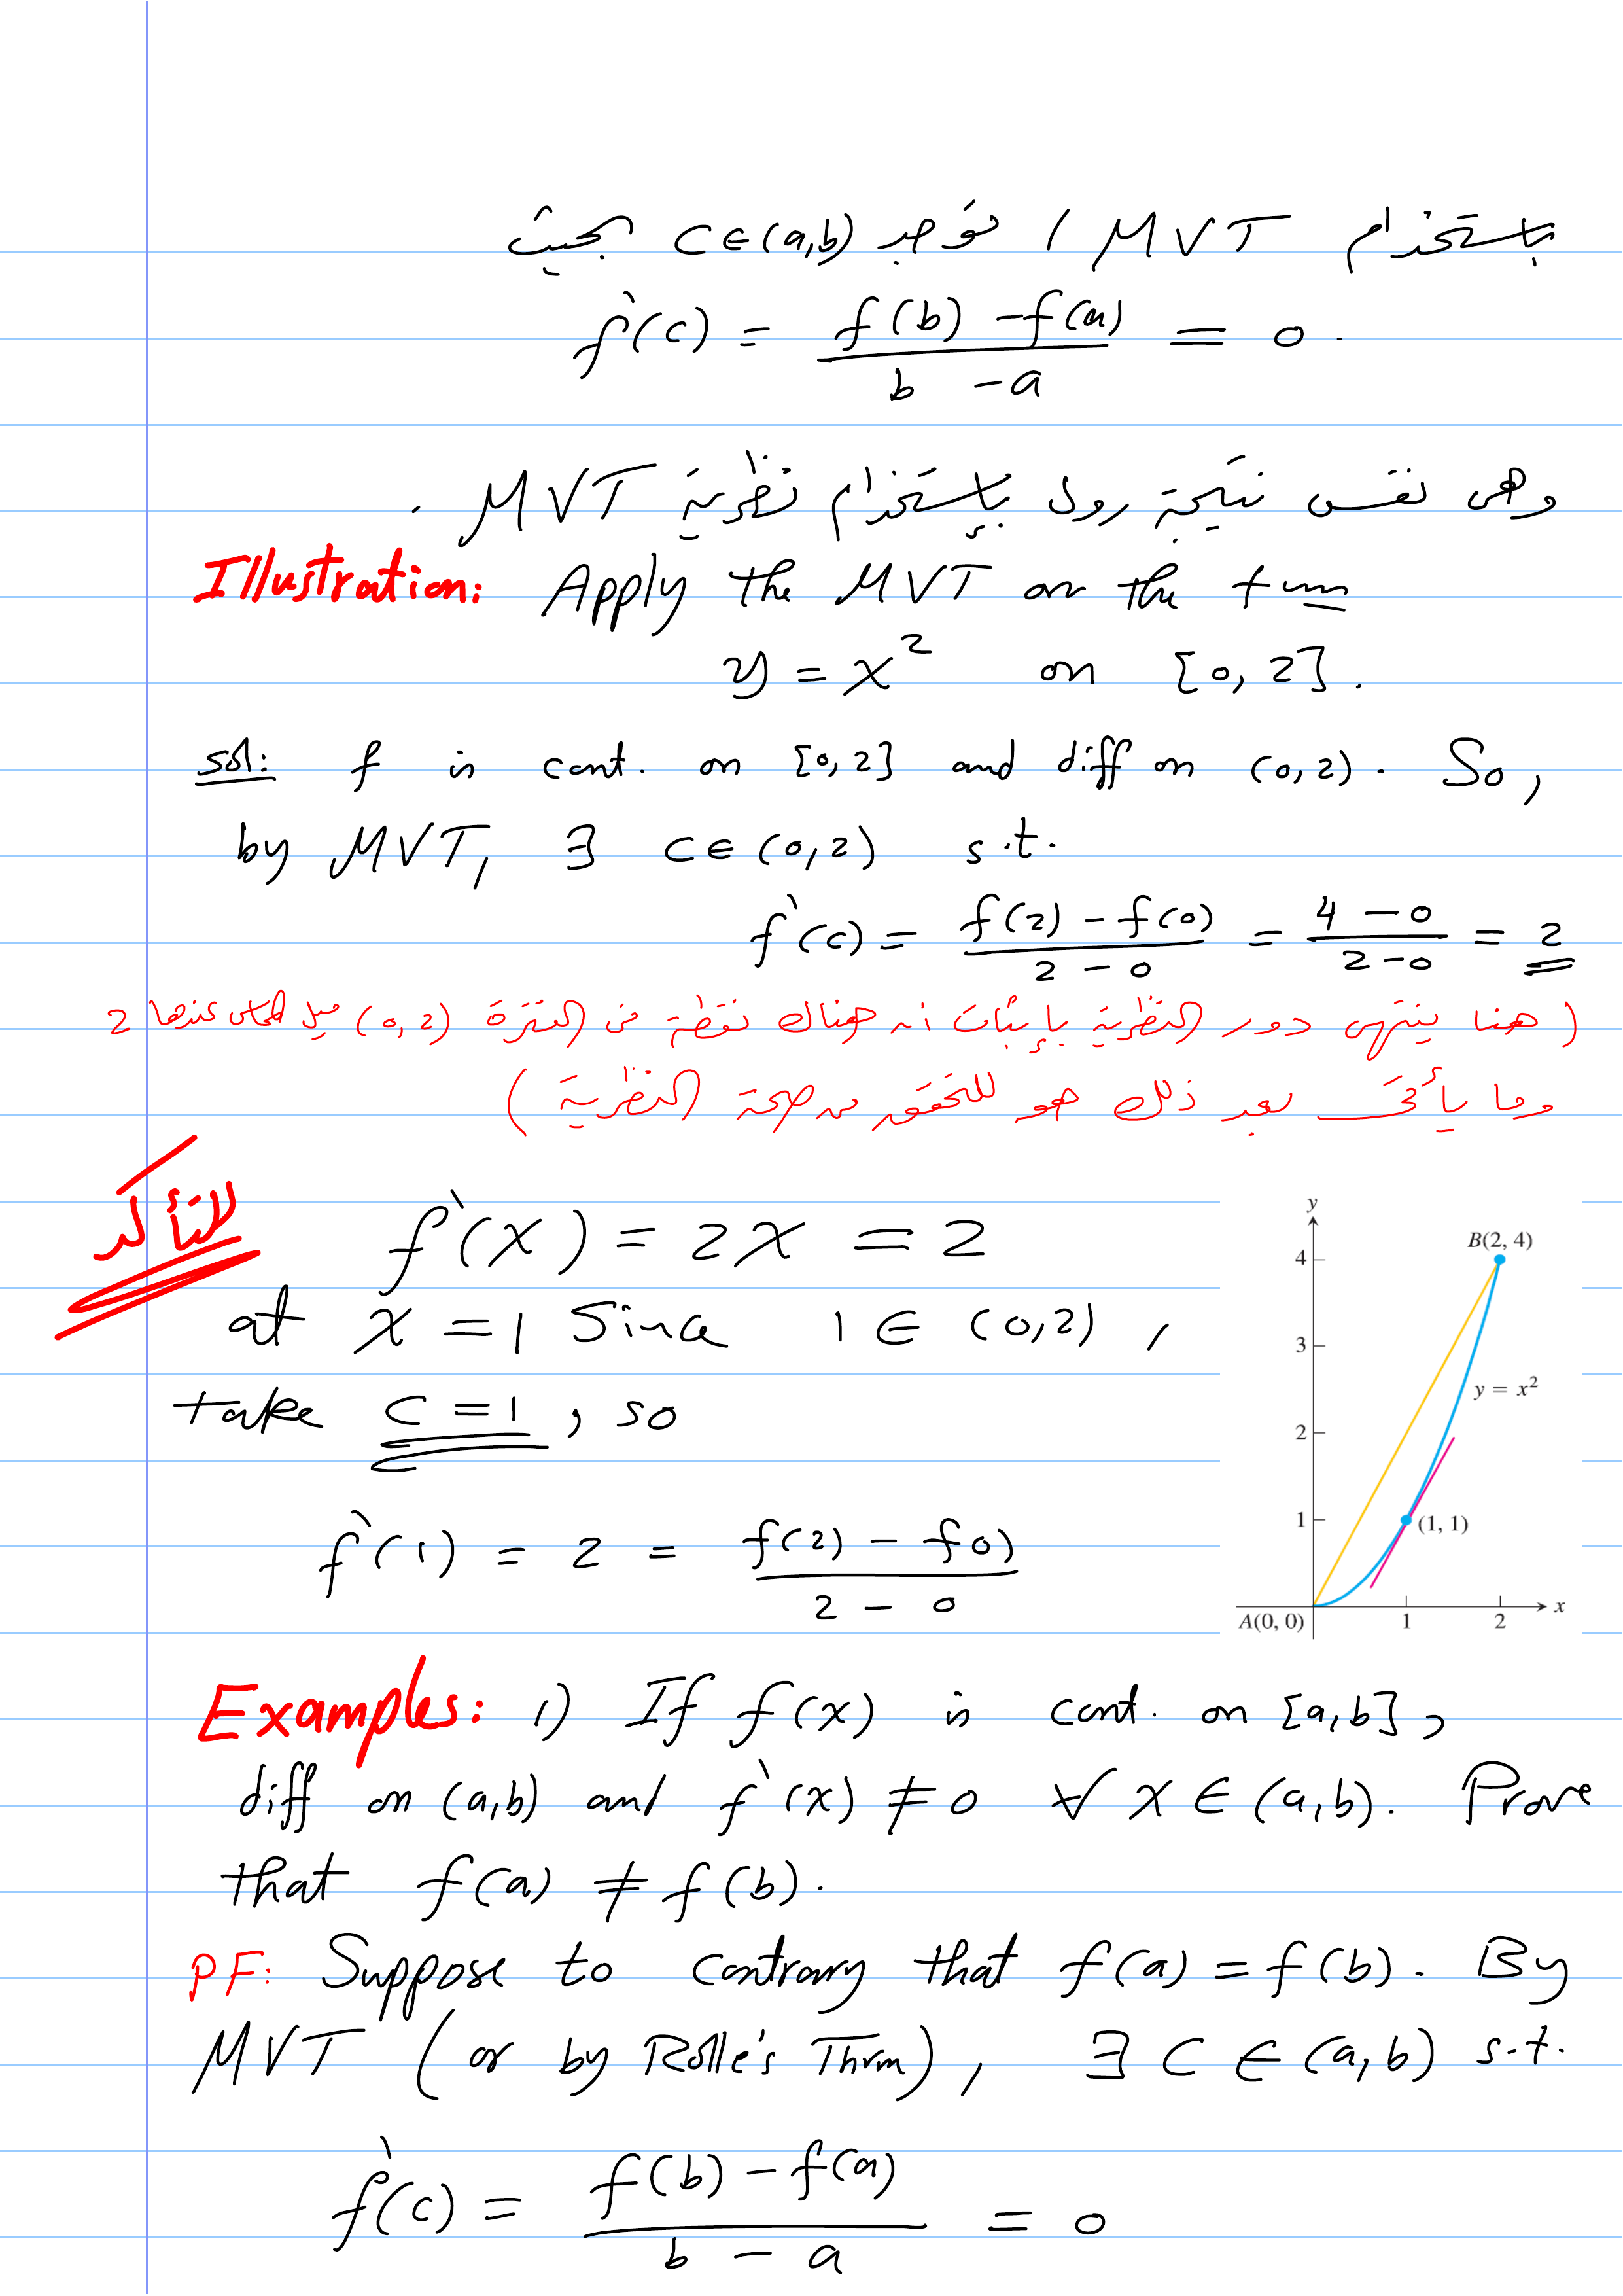 باستخدام MVT / نوجد c∈(a,b) بحيث
f`(c) = (f(b) - f(a)) / (b - a) = 0.
وهى نفس نتيجة رول بإستخدام نظرية MVT .
Illustration: Apply the MVT on the fun
y = x² on [0, 2].
sol: f is cont. on [0,2] and diff on (0,2). So,
by MVT, ∃ c∈(0,2) s.t.
f`(c) = (f(2) - f(0)) / (2 - 0) = (4 - 0) / (2 - 0) = 2
(هنا ينتهى دور النظرية بإثبات أنه هناك نقطة فى الفترة (0,2) ميل المماس عندها 2
وما يأتى بعد ذلك هو للتحقق من صحة النظرية)
للتأكد
f`(x) = 2x = 2
at x = 1 Since 1 ∈ (0,2) ,
take c = 1 , so
f`(1) = 2 = (f(2) - f0)) / (2 - 0)
y
B(2, 4)
4
3
y = x²
2
1
(1, 1)
A(0, 0)
1
2
x
Examples: 1) If f(x) is cont. on [a,b],
diff on (a,b) and f`(x) ≠ 0 ∀ x ∈ (a,b). Prove
that f(a) ≠ f(b).
PF: Suppose to contrary that f(a) = f(b). By
MVT (or by Rolle's Thrm), ∃ c ∈ (a,b) s.t.
f`(c) = (f(b) - f(a)) / (b - a) = 0